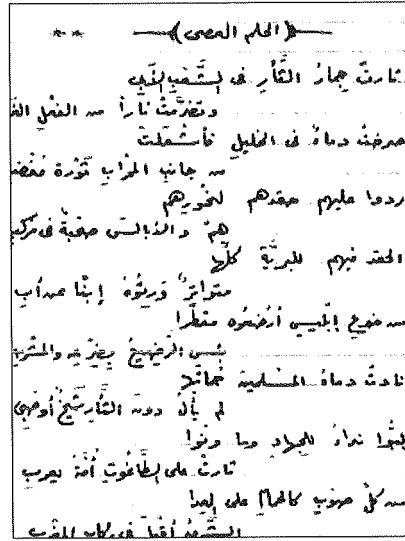 ((الحلم العصى))
ثارتْ جمارُ الثَّأرِ فى الشَّعبِ الأبى
وتضرَّمتْ ناراً من الفعلِ
صرختْ دماءٌ فى الخليلِ فأشعلتْ
من جانبِ المحرابِ ثورةَ مغضب
ردوا عليهم حقدهم لنحورهم
همْ والأبالسُ صحبةٌ فى مركب
الحقد فيهم للبريَّةِ كلِّها
متواترٌ وَرِثُوهُ إبنًا عن أب
من ضرعِ إبليسَ أرضعوه مقطَّرا
بئس الرضيعُ والمشرب
نادتْ دماءُ المسلمينَ حُماتَها
لم يألُ دونَ الثَّأرِ شيخٌ أو صبى
لبُّوا نداءً للجهادِ وما ونوا
ثارتْ على الطَّاغوتِ أمةُ يعرب
من كلِّ صوبٍ على العِدا
فى ركابِ المغرب